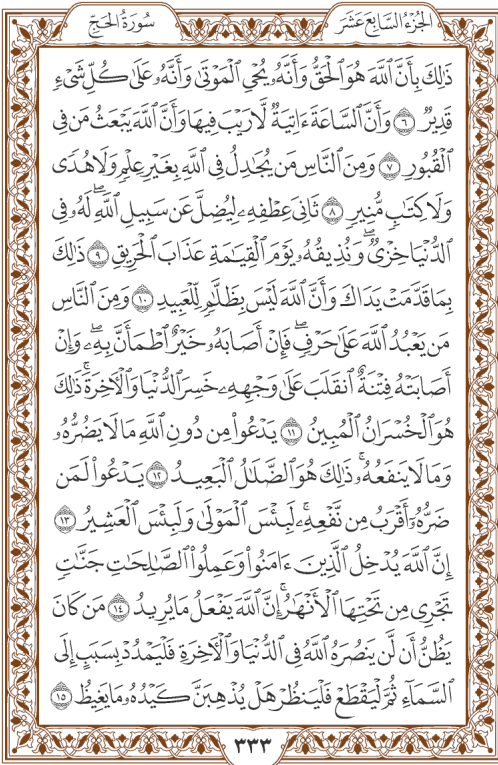 الجُزْءُ السَّابِعَ عَشَرَ
سُورَةُ الحَجِّ
ذَٰلِكَ بِأَنَّ ٱللَّهَ هُوَ ٱلْحَقُّ وَأَنَّهُۥ يُحْىِ ٱلْمَوْتَىٰ وَأَنَّهُۥ عَلَىٰ كُلِّ شَىْءٍۢ
قَدِيرٌۭ ٦ وَأَنَّ ٱلسَّاعَةَ ءَاتِيَةٌۭ لَّا رَيْبَ فِيهَا وَأَنَّ ٱللَّهَ يَبْعَثُ مَن فِى
ٱلْقُبُورِ ٧ وَمِنَ ٱلنَّاسِ مَن يُجَٰدِلُ فِى ٱللَّهِ بِغَيْرِ عِلْمٍۢ وَلَا هُدًۭى
وَلَا كِتَٰبٍۢ مُّنِيرٍۢ ٨ ثَانِىَ عِطْفِهِۦ لِيُضِلَّ عَن سَبِيلِ ٱللَّهِ ۖ لَهُۥ فِى
ٱلدُّنْيَا خِزْىٌۭ ۖ وَنُذِيقُهُۥ يَوْمَ ٱلْقِيَٰمَةِ عَذَابَ ٱلْحَرِيقِ ٩ ذَٰلِكَ
بِمَا قَدَّمَتْ يَدَاكَ وَأَنَّ ٱللَّهَ لَيْسَ بِظَلَّٰمٍۢ لِّلْعَبِيدِ ١٠ وَمِنَ ٱلنَّاسِ
مَن يَعْبُدُ ٱللَّهَ عَلَىٰ حَرْفٍۢ ۖ فَإِنْ أَصَابَهُۥ خَيْرٌ ٱطْمَأَنَّ بِهِۦ ۖ وَإِنْ
أَصَابَتْهُ فِتْنَةٌ ٱنقَلَبَ عَلَىٰ وَجْهِهِۦ خَسِرَ ٱلدُّنْيَا وَٱلْءَاخِرَةَ ۚ ذَٰلِكَ
هُوَ ٱلْخُسْرَانُ ٱلْمُبِينُ ١١ يَدْعُوا۟ مِن دُونِ ٱللَّهِ مَا لَا يَضُرُّهُۥ
وَمَا لَا يَنفَعُهُۥ ۚ ذَٰلِكَ هُوَ ٱلضَّلَٰلُ ٱلْبَعِيدُ ١٢ يَدْعُوا۟ لَمَن
ضَرُّهُۥٓ أَقْرَبُ مِن نَّفْعِهِۦ ۚ لَبِئْسَ ٱلْمَوْلَىٰ وَلَبِئْسَ ٱلْعَشِيرُ ١٣
إِنَّ ٱللَّهَ يُدْخِلُ ٱلَّذِينَ ءَامَنُوا۟ وَعَمِلُوا۟ ٱلصَّٰلِحَٰتِ جَنَّٰتٍۢ
تَجْرِى مِن تَحْتِهَا ٱلْأَنْهَٰرُ ۚ إِنَّ ٱللَّهَ يَفْعَلُ مَا يُرِيدُ ١٤ مَن كَانَ
يَظُنُّ أَن لَّن يَنصُرَهُ ٱللَّهُ فِى ٱلدُّنْيَا وَٱلْءَاخِرَةِ فَلْيَمْدُدْ بِسَبَبٍ إِلَى
ٱلسَّمَآءِ ثُمَّ لْيَقْطَعْ فَلْيَنظُرْ هَلْ يُذْهِبَنَّ كَيْدُهُۥ مَا يَغِيظُ ١٥
٣٣٣